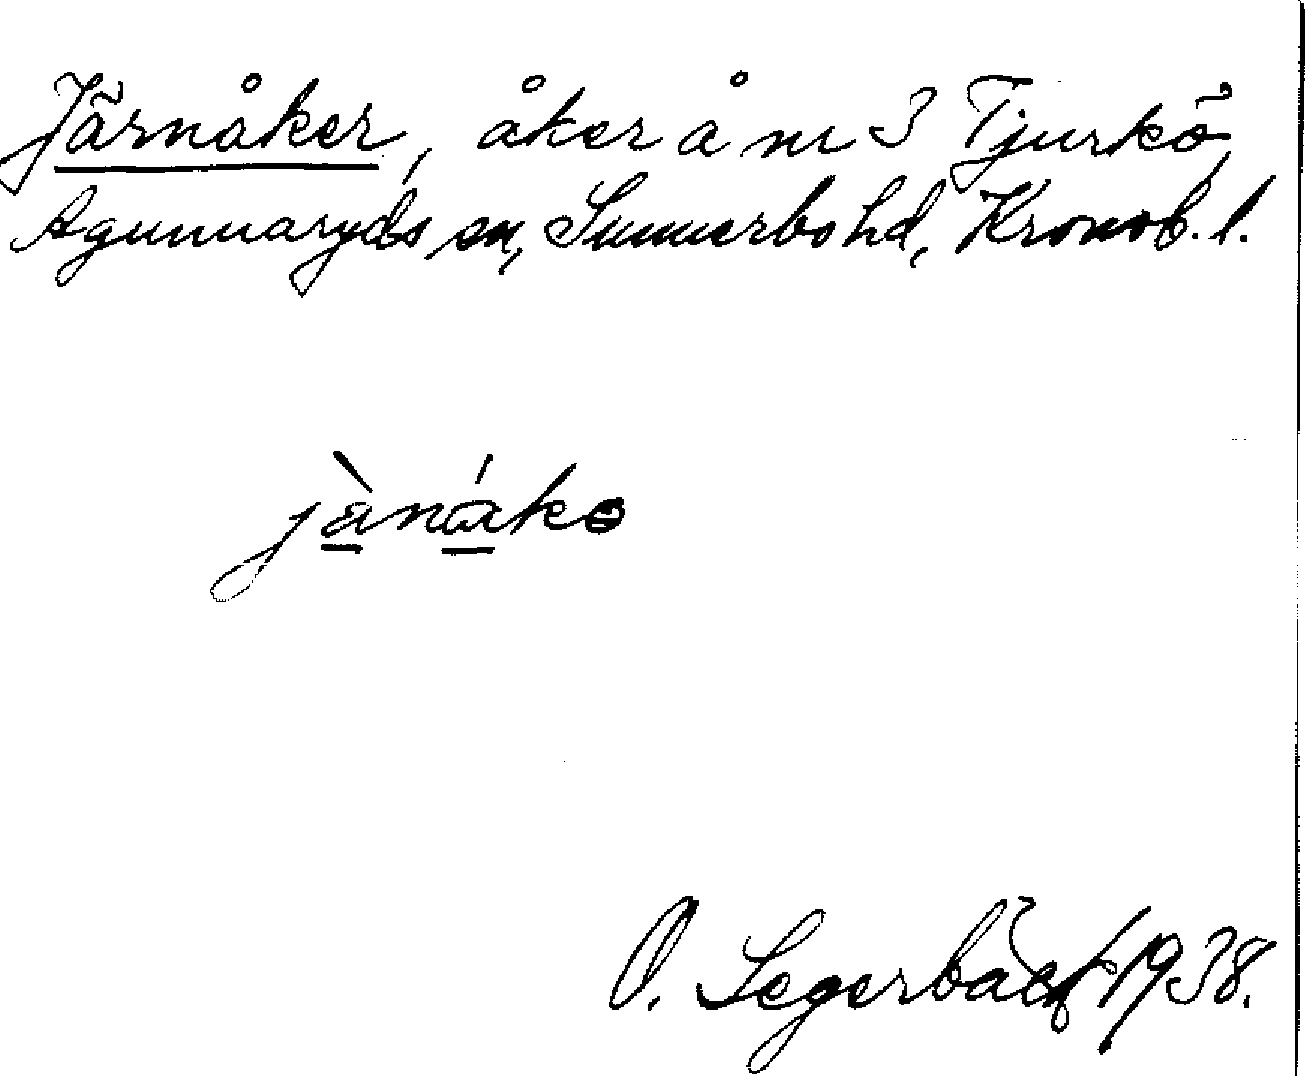 Järnåker, åker å nr 3 Tjurkö,
Agunnaryds sn, Sunnerbo hd, Kronob. l.
jànákə
O. Segerbäck 1938.